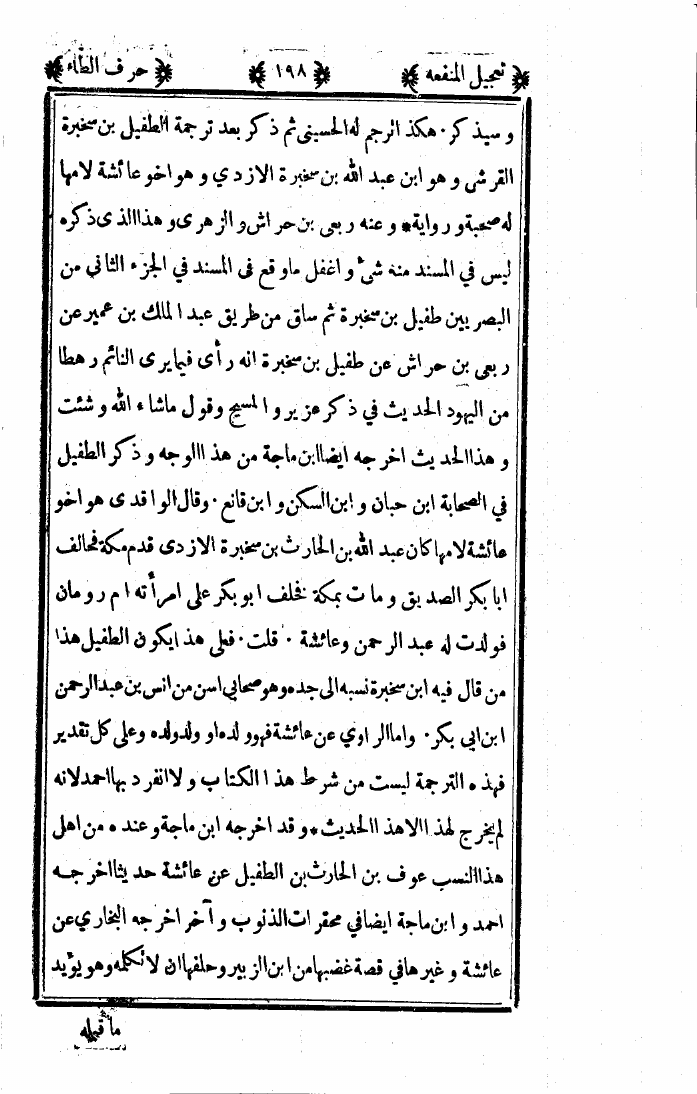 تعجيل المنفعه ١٩٨ حرف الطاء
وسيذكر ٠ هكذا الرجم له الحسيني ثم ذكر بعد ترجمة الطفيل بن سخبرة
القرشى وهو ابن عبد الله بن سخبرة الازدي وهو اخو عائشة لامها
له صحبة ورواية * وعنه ربعى بن حراش والزهرى وهذا الذى ذكره
ليس في المسند منه شئ واغفل ما وقع فى المسند في الجزء الثاني من
البصريين طفيل بن سخبرة ثم ساق من طريق عبد الملك بن عمير عن
ربعى بن حراش عن طفيل بن سخبرة انه رأى فيما يرى النائم رهطا
من اليهود الحديث في ذكر عزير والمسيح وقول ماشاء الله وشئت
وهذا الحديث اخرجه ايضا ابن ماجة من هذا الوجه وذكر الطفيل
في الصحابة ابن حبان وابن السكن وابن قانع ٠ وقال الواقدى هو اخو
عائشة لامها كان عبد الله بن الحارث بن سخبرة الازدى قدم مكة فحالف
ابا بكر الصديق ومات بمكة فخلف ابو بكر على امرأته ام رومان
فولدت له عبد الرحمن وعائشة ٠ قلت ٠ فعلى هذا يكون الطفيل هذا
من قال فيه ابن سخبرة نسبه الى جده وهو صحابي اسن من انس بن عبد الرحمن
ابن ابي بكر ٠ واما الراوي عن عائشة فهو ولده او ولد ولده وعلى كل تقدير
فهذه الترجمة ليست من شرط هذا الكتاب ولا انفرد بها احمد لانه
لم يخرج لهذا الا هذا الحديث * وقد اخرجه ابن ماجة وعنده من اهل
هذا النسب عوف بن الحارث بن الطفيل عن عائشة حديثا اخرجه
احمد وابن ماجة ايضا في محقرات الذنوب وآخر اخرجه البخاري عن
عائشة وغيرها في قصة غضبها من ابن الزبير وحلفها ان لا تكلمه وهو يؤيد
ما قبله